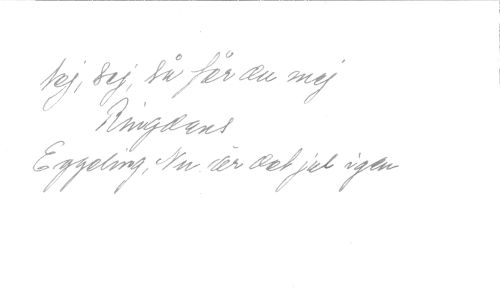 Nej, Nej, så får du mej
Ringdans
Eggeling, Nu är det jul igen